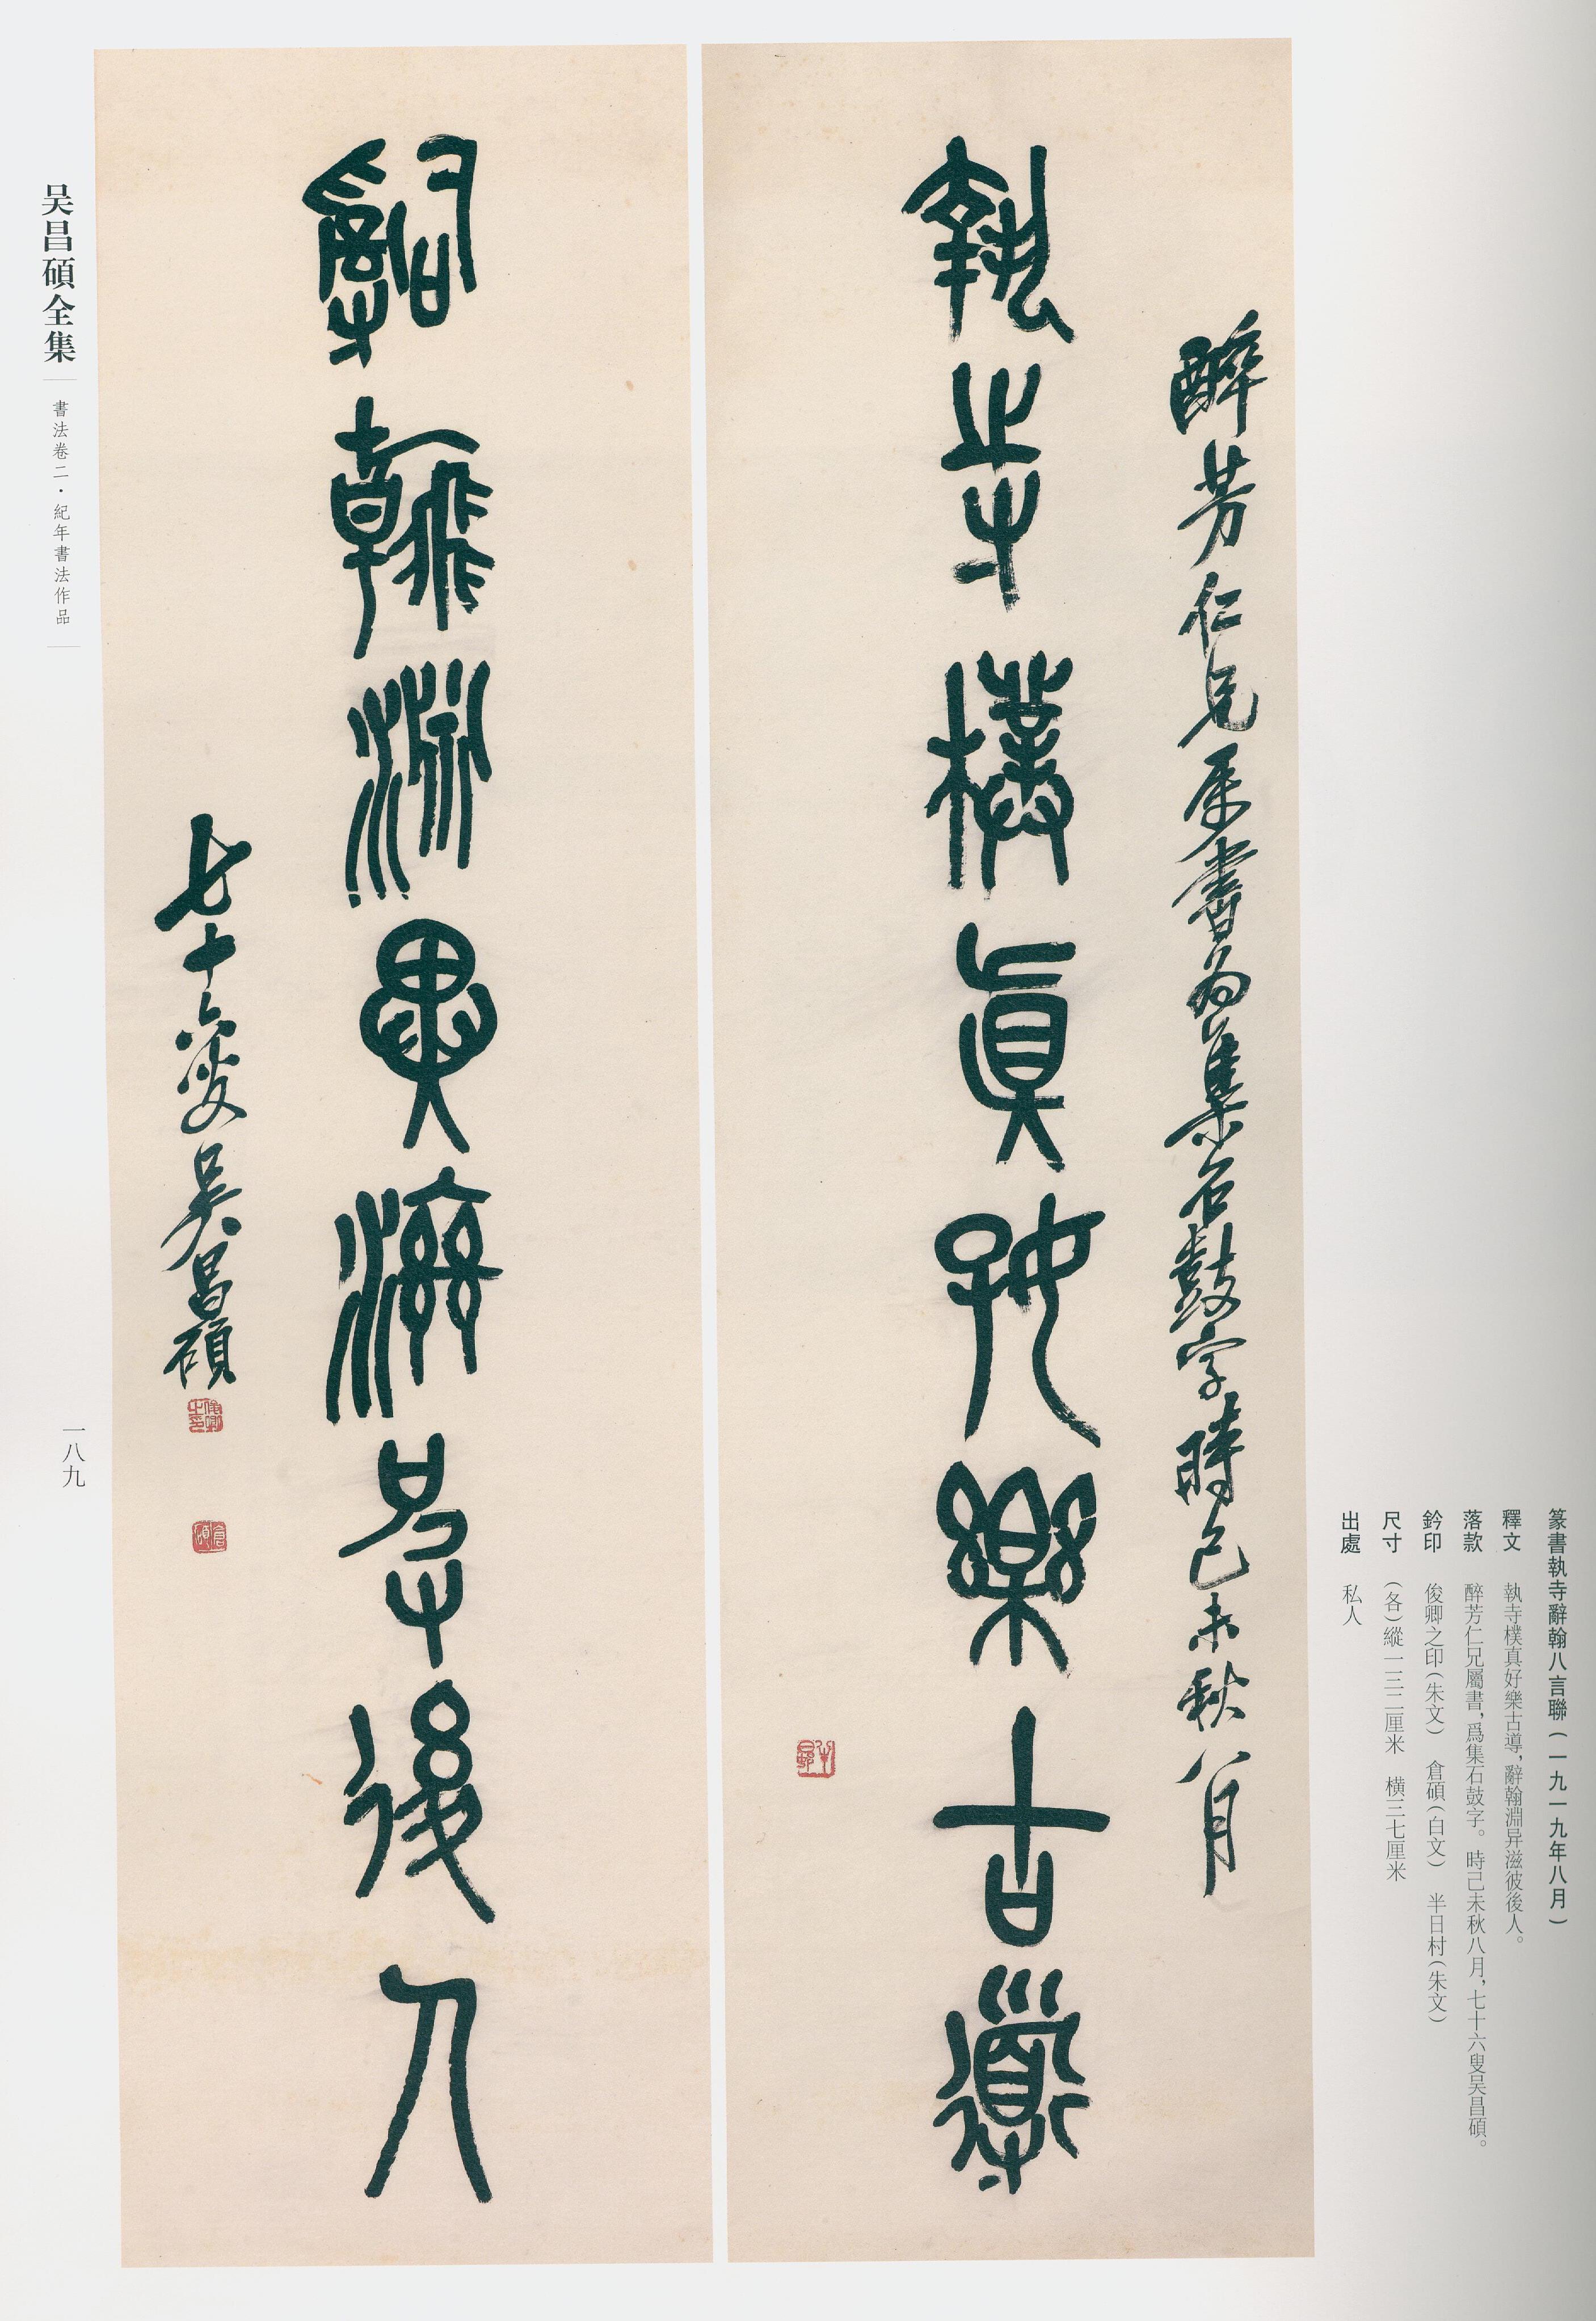 篆書執寺辭翰八言聯(一九一九年八月)
釋文 執寺樸真好樂古導,辭翰淵异滋彼後人。
落款 醉芳仁兄屬書,爲集石鼓字。時己未秋八月,七十六叟吴昌碩。
鈐印 俊卿之印(朱文) 倉碩(白文) 半日村(朱文)
尺寸 (各)縱一三二厘米 横三七厘米
出處 私人
醉芳仁兄属書為集石鼓字時己未秋八月
執寺樸真好樂古導
半日邨
辭翰淵异滋彼後人
七十六叟吴昌碩
俊卿之印
倉碩
吴昌碩全集
書法卷二·紀年書法作品
一八九